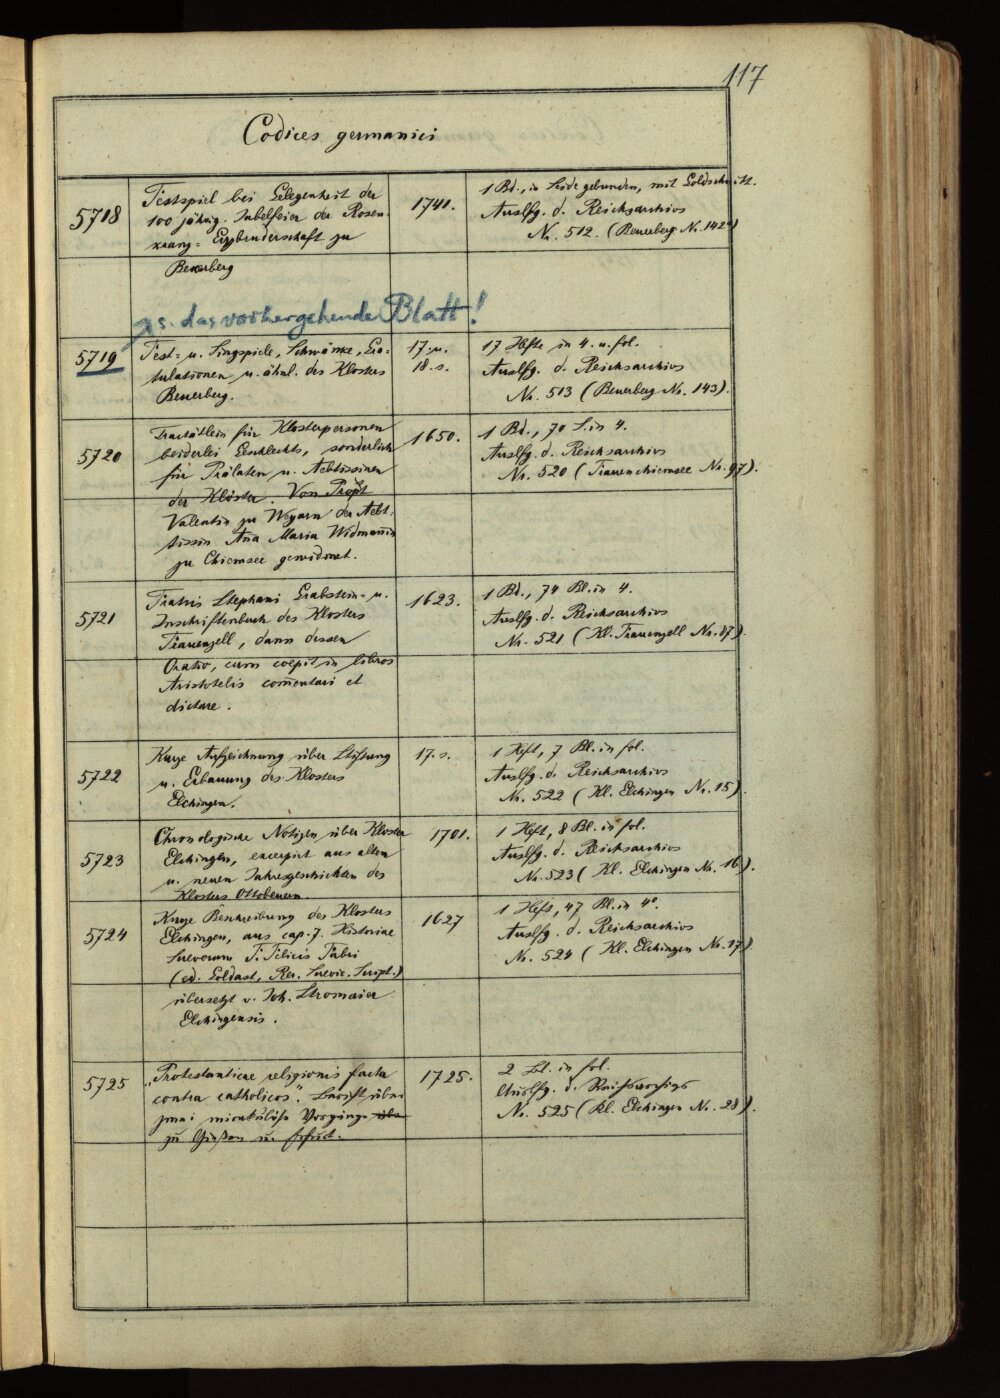 117
Codices germanici
5718
Festspiel bei Gelegenheit der
100 jährig. Jubelfeier der Rosen-
kranz= Erzbruderschaft zu
Beuerberg
1741.
1 Bd., in Seide gebunden, mit Goldschnitt.
Auslfg. d. Reichsarchivs
Nr. 512. (Beuerberg Nr. 142)
s. das vorhergehende Blatt!
5719
Fest= u. Singspiele, Schwänke, Gra=
tulationen u. ähnl. des Klosters
Beuerberg.
17. u.
18. s.
17 Hefte in 4. u. fol.
Auslfg. d. Reichsarchivs
Nr. 513 (Beuerberg Nr. 143).
5720
Tractätlein für Klosterpersonen
beiderlei Geschlechts, sonderlich
für Prälaten u. Aebtissinen
der Klöster. Von Propst
Valentin zu Weyarn der Aebt-
tissin Aña Maria Widmañin
zu Chiemsee gewidmet.
1650.
1 Bd., 70 S. in 4.
Auslfg. d. Reichsarchivs
Nr. 520 (Frauenchiemsee Nr. 97).
5721
Fratris Stephani Grabstein- u.
Inschriftenbuch des Klosters
Frauenzell, dann dessen
Oratio, cum coepit in libros
Aristotelis com̄entari et
dictare.
1623.
1 Bd., 74 Bl. in 4.
Auslfg. d. Reichsarchivs
Nr. 521 (Kl. Frauenzell Nr. 87).
5722
Kurze Aufzeichnung über Stiftung
u. Erbauung des Klosters
Elchingen.
17. s.
1 Heft, 7 Bl. in fol.
Auslfg. d. Reichsarchivs
Nr. 522 (Kl. Elchingen Nr. 15).
5723
Chronologische Notizen über Kloster
Elchingen, excerpirt aus alten
u. neuen Jahresgeschichten des
Klosters Ottobeuern
1701.
1 Heft, 8 Bl. in fol.
Auslfg. d. Reichsarchivs
Nr. 523 (Kl. Elchingen Nr. 16).
5724
Kurze Beschreibung des Klosters
Elchingen, aus cap. 7. Historiae
Suevorum F. Felicis Fabri
(ed. Goldast, Rer. Suevic. Script.)
übersetzt v. Joh. Stromaier
Elchingensis.
1627
1 Heft, 47 Bl. in 4º.
Auslfg. d. Reichsarchivs
Nr. 524 (Kl. Elchingen Nr. 17).
5725
„Protestanticae religionis facta
contra catholicos". Bericht über
zwei mirakulöse Vorgänge
zu Gießen u.
1725.
2 Bl. in fol.
Auslfg. d. Reichsarchivs
Nr. 525 (Kl. Elchingen Nr. 28).